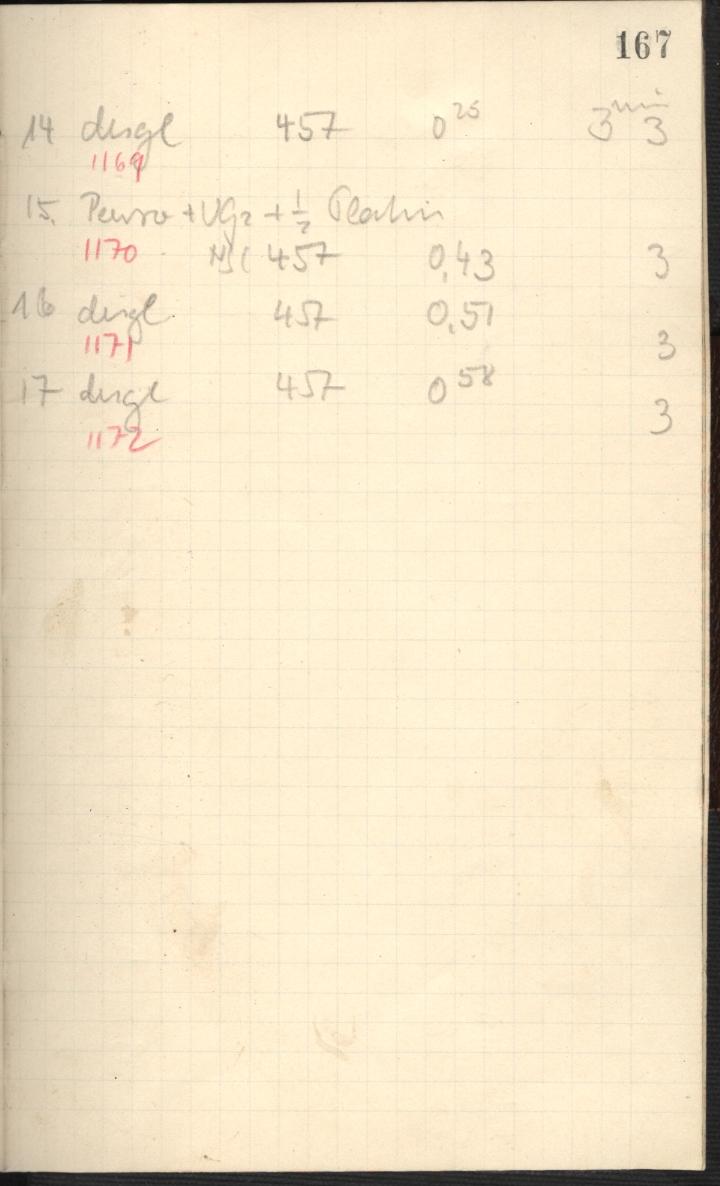 167
14 desgl 457 0²⁵ 3 min 3
1169
15. + UG2 + ½ Platin
1170 457 0,43 3
16 desgl 457 0,51
1171 3
17 desgl 457 0⁵⁸
1172 3